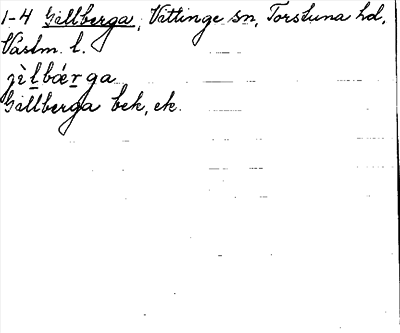 1-4 Gillberga, Vittinge sn, Torstuna hd,
Västm. l.
jìlbǽrga
Gillberga bek, ek.